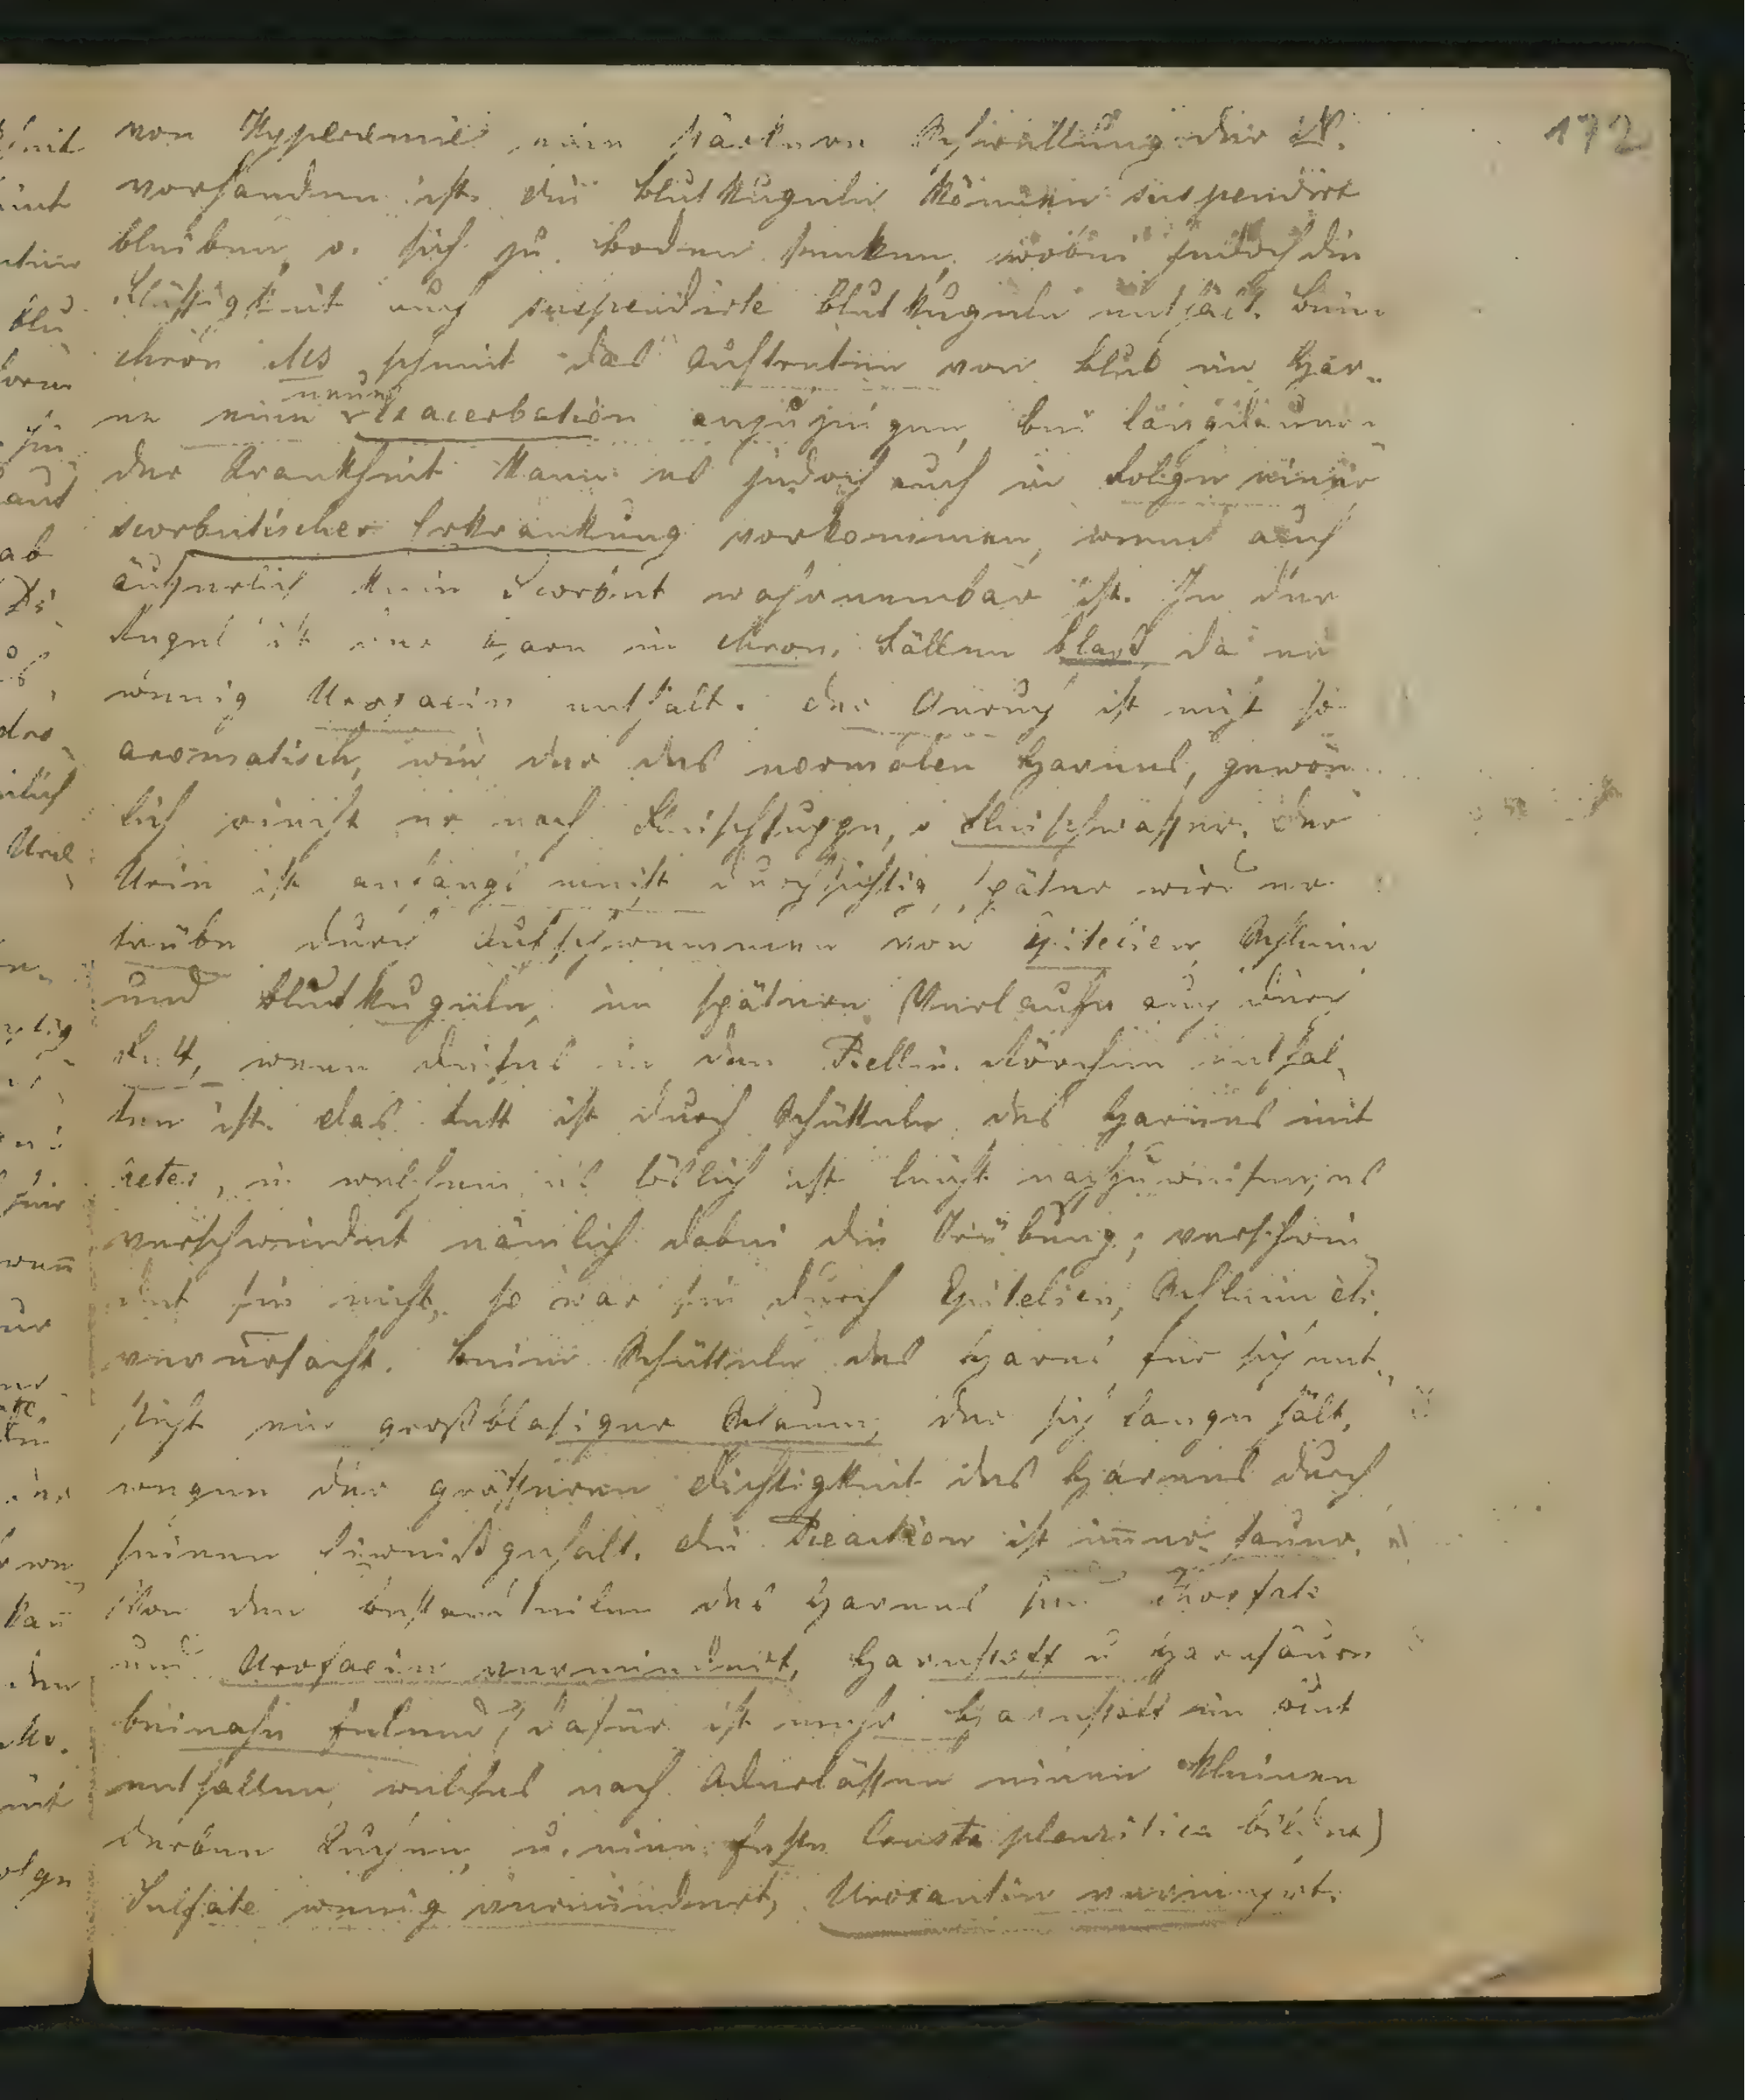 172
von Hyperämie eine stärkere Schwellung der N.
vorhanden ist. Die Blutkugeln können suspendirt
bleiben, o. sich zu Boden senken, wobei jedoch die
Flüssigkeit auch suspendirte Blutkugeln enthält. Beim
chron. Mb scheint das Auftreten von Blut im Har-
ne eine neue Exacerbation anzuzeigen, bei längerdauern-
der Krankheit kann es jedoch auch in Folge einer
scorbutischer Erkrankung vorkommen, wenn auch
äußerlich kein Scorbut wahrnembar ist. In der
Regel ist der Harn in chron. Fällen blass da er
wenig Uroxacin enthält. Der Geruch ist nicht so
aromatisch, wie der des normalen Harnes, gewön
lich riecht er nach Fleischsuppe, o Fleischwasser. Der
Urin ist anfangs meist durchsichtig, später wird er
trübe durch Aufschwemmen von Epitelien, Schleim
und Blutkugeln, im späteren Verlaufe auch durch
Fett, wenn dieses in den Bellin. Körchen enthal-
ten ist. Das Fett ist durch Schütteln des Harnes mit
Aeter, in welchem es löslich ist leicht nachzuweisen, es
verschwindet nämlich dabei die Trübung; verschwin
det sie nicht, so war sie durch Epitelien, Schleim etc.
verursacht. Beim Schütteln des Harns für sich ent-
steht ein großblasiger Schaum, der sich lange hält,
wegen der grösseren Dichtigkeit des Harnes durch
seinen Eiweißgehalt. Die Reaction ist im̄er sauer.
Von den Bestandteilen des Harnes sind Phosfate
und Uroxacin vermindert, Harnstoff u Harnsäure
beinahe fehlend (dafür ist mehr Harnstoff im Blut
enthalten, welches nach Aderlässen einen kleinen
derben Kuchen, u. eine feste Crusta pleuritica bildet)
Sulfate wenig vermindert, Uroxantin vermehrt.